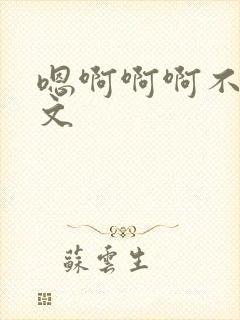 嗯啊啊啊不
文
蘇雲生